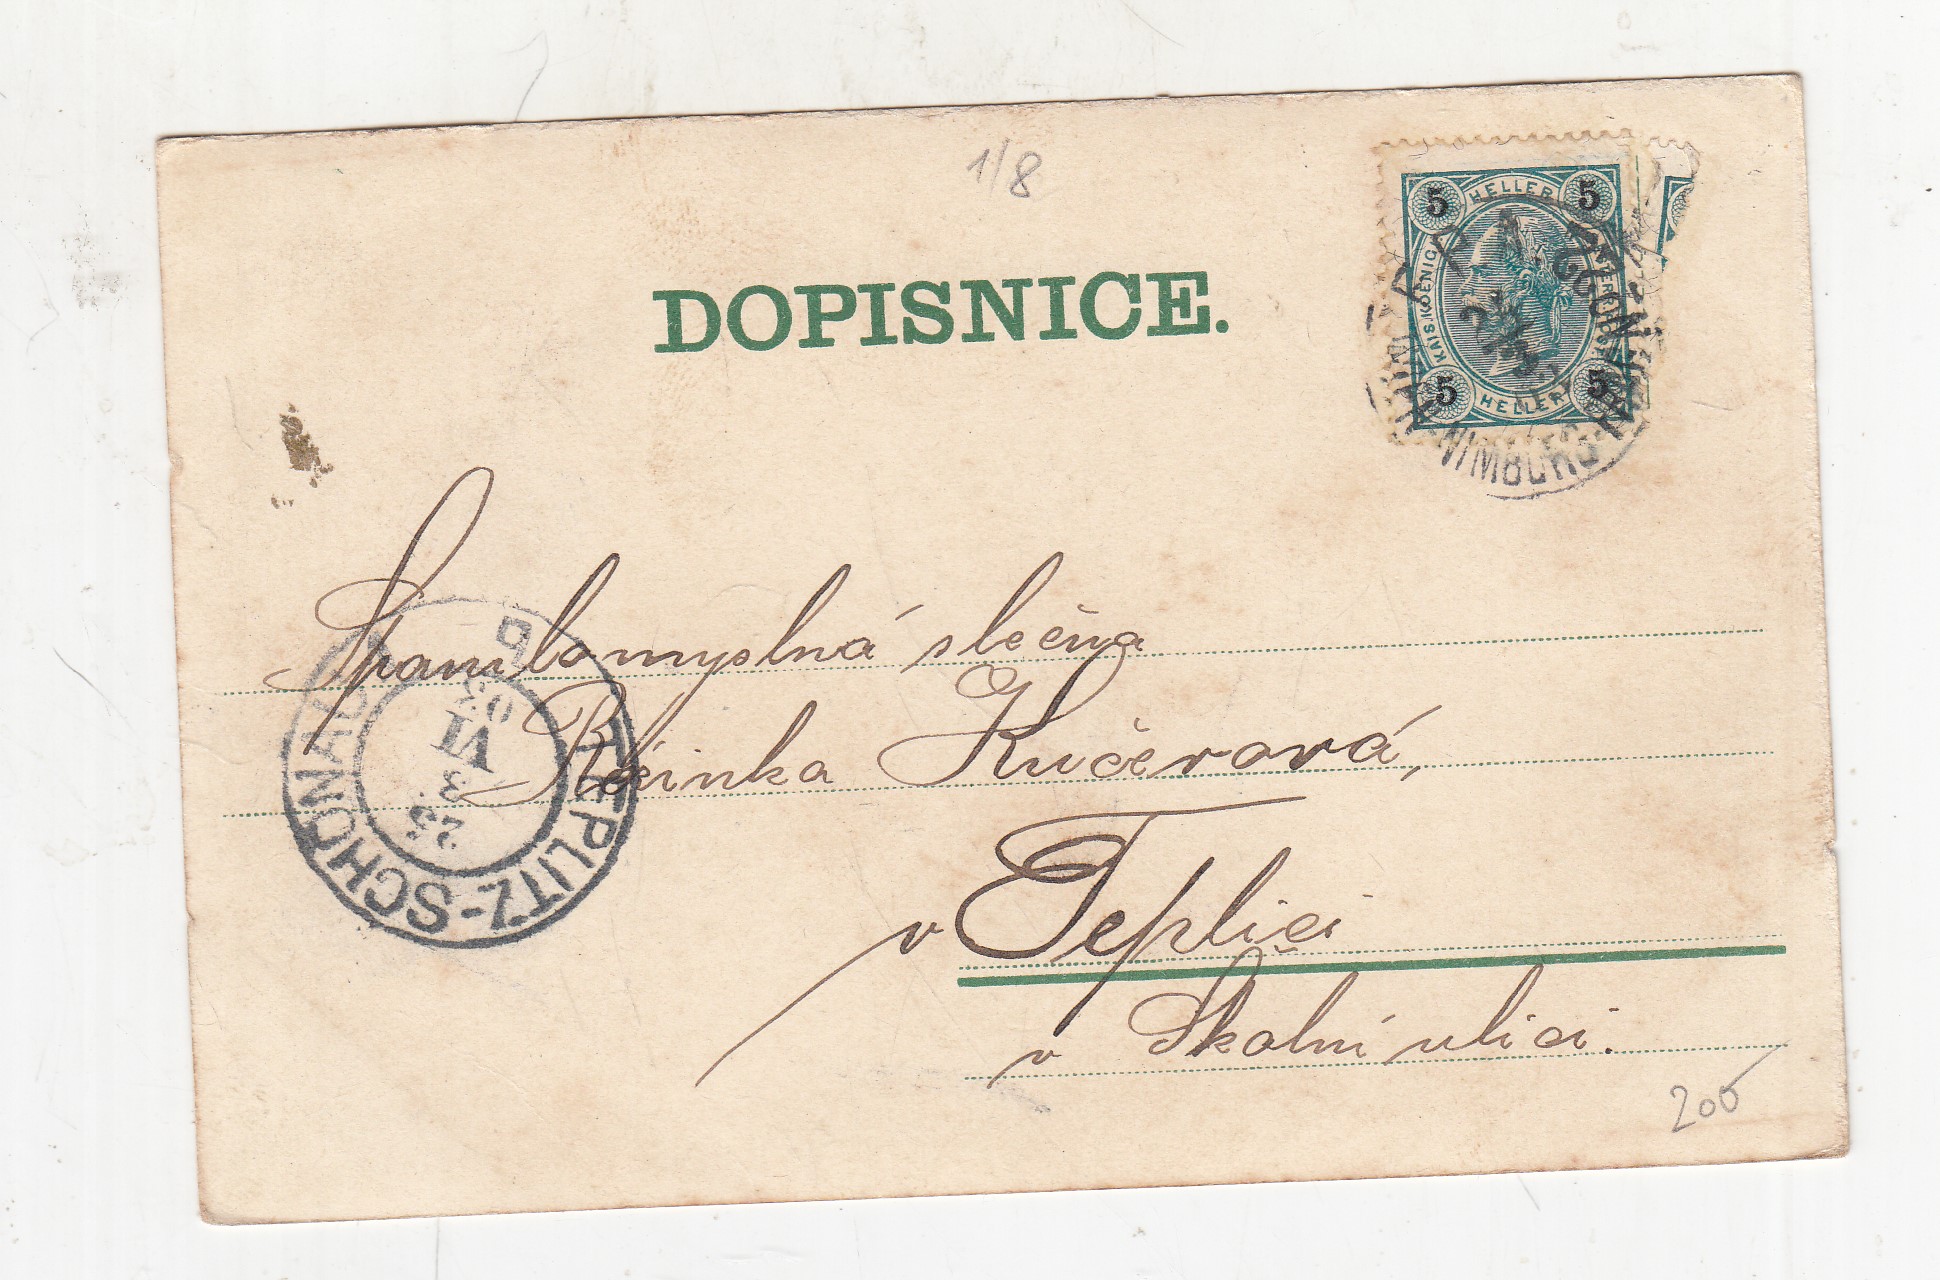 1/8
DOPISNICE.
5 HELLER 5
KAIS. KOENIGL.
5 HELLER 5
NIMBURG
Spanilomyslná slečna
Růžinka Kučerová,
v Teplici
v Školní ulici.
TEPLITZ-SCHÖNAU
25
3
VI
03
200